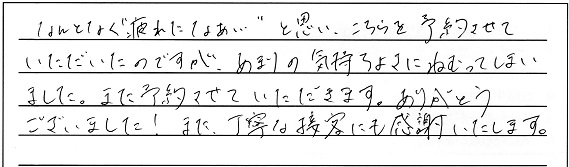 なんとなく"疲れたなあ〜"と思い、こちらを予約させて
いただいたのですが、あまりの気持ちよさにねむってしまい
ました。また予約させていただきます。ありがとう
ございました！また、丁寧な接客にも感謝いたします。